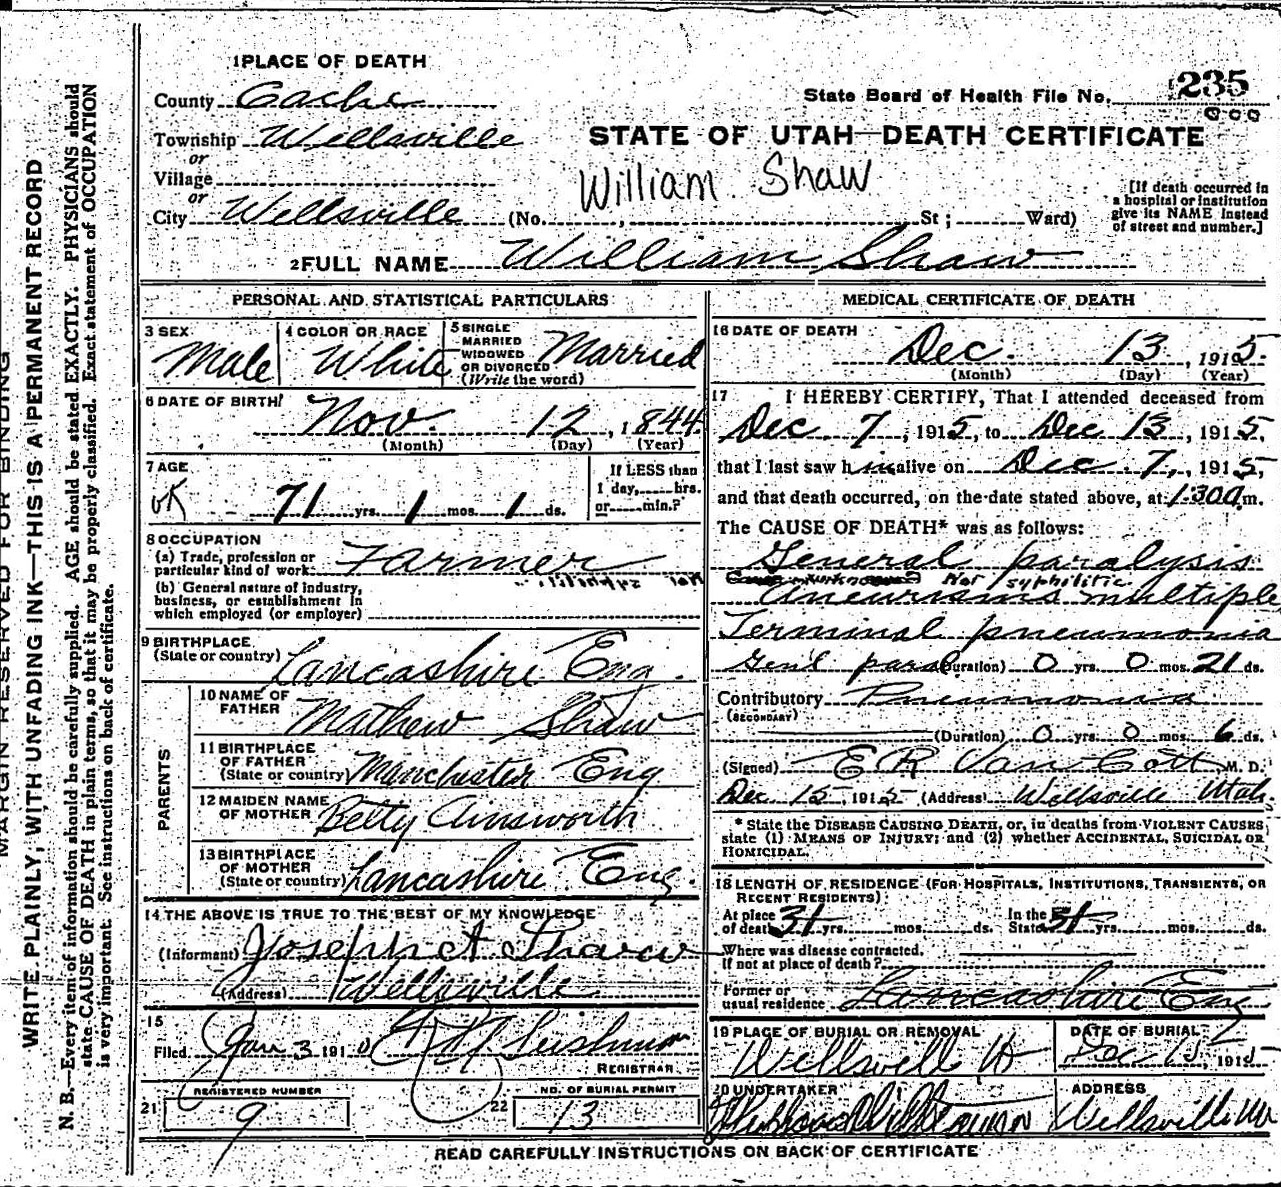 1 PLACE OF DEATH
County Cache
State Board of Health File No. 235
Township Wellsville
or
Village
or
City Wellsville (No. , St ; Ward)
STATE OF UTAH—DEATH CERTIFICATE
William Shaw
[If death occurred in
a hospital or institution
give its NAME instead
of street and number.]
2 FULL NAME William Shaw
PERSONAL AND STATISTICAL PARTICULARS
3 SEX
Male
4 COLOR OR RACE
White
5 SINGLE
MARRIED
WIDOWED
OR DIVORCED
(Write the word)
Married
6 DATE OF BIRTH
Nov. 12, 1844
(Month) (Day) (Year)
7 AGE
OK
71 yrs. 1 mos. 1 ds.
If LESS than
1 day, hrs.
or min.?
8 OCCUPATION
(a) Trade, profession or
particular kind of work Farmer
(b) General nature of industry,
business, or establishment in
which employed (or employer)
9 BIRTHPLACE
(State or country) Lancashire Eng.
PARENTS
10 NAME OF
FATHER Mathew Shaw
11 BIRTHPLACE
OF FATHER
(State or country) Manchester Eng
12 MAIDEN NAME
OF MOTHER Betty Ainsworth
13 BIRTHPLACE
OF MOTHER
(State or country) Lancashire Eng.
14 THE ABOVE IS TRUE TO THE BEST OF MY KNOWLEDGE
(Informant) Joseph A Shaw
(Address) Wellsville
15
Filed Jan 3 191
REGISTRAR
REGISTERED NUMBER
21 9
NO. OF BURIAL PERMIT
22 13
MEDICAL CERTIFICATE OF DEATH
16 DATE OF DEATH
Dec. 13, 1915.
(Month) (Day) (Year)
17 I HEREBY CERTIFY, That I attended deceased from
Dec. 7, 1915, to Dec 13, 1915,
that I last saw him alive on Dec 7, 1915,
and that death occurred, on the date stated above, at m.
The CAUSE OF DEATH* was as follows:
General paralysis
Not syphilitic
Aneurisms multiple
Terminal pneumonia
Gen'l paral (Duration) 0 yrs. 0 mos. 21 ds.
Contributory Pneumonia
(SECONDARY)
(Duration) 0 yrs. 0 mos. 6 ds.
(Signed) E R Van Cott M. D.
Dec 15, 1915 (Address) Wellsville Utah
* State the DISEASE CAUSING DEATH, or, in deaths from VIOLENT CAUSES,
state (1) MEANS OF INJURY; and (2) whether ACCIDENTAL, SUICIDAL OR
HOMICIDAL.
18 LENGTH OF RESIDENCE (FOR HOSPITALS, INSTITUTIONS, TRANSIENTS, OR
RECENT RESIDENTS)
At place
of death 31 yrs. mos. ds. In the
State 31 yrs. mos. ds.
Where was disease contracted,
If not at place of death?
Former or
usual residence Lancashire Eng
19 PLACE OF BURIAL OR REMOVAL
DATE OF BURIAL
Dec 15, 1915
20 UNDERTAKER
ADDRESS
Wellsville
READ CAREFULLY INSTRUCTIONS ON BACK OF CERTIFICATE
MARGIN RESERVED FOR BINDING
WRITE PLAINLY, WITH UNFADING INK—THIS IS A PERMANENT RECORD
N. B.—Every item of information should be carefully supplied. AGE should be stated EXACTLY. PHYSICIANS should
state CAUSE OF DEATH in plain terms, so that it may be properly classified. Exact statement of OCCUPATION
is very important. See instructions on back of certificate.